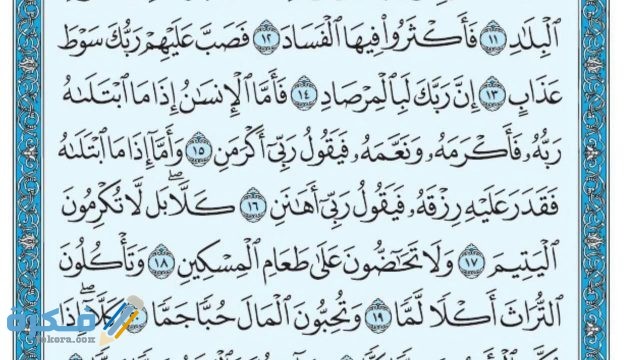 ٱلۡبِلَٰدِ ١١ فَأَكۡثَرُواْ فِيهَا ٱلۡفَسَادَ ١٢ فَصَبَّ عَلَيۡهِمۡ رَبُّكَ سَوۡطَ
عَذَابٍ ١٣ إِنَّ رَبَّكَ لَبِٱلۡمِرۡصَادِ ١٤ فَأَمَّا ٱلۡإِنسَٰنُ إِذَا مَا ٱبۡتَلَىٰهُ
رَبُّهُۥ فَأَكۡرَمَهُۥ وَنَعَّمَهُۥ فَيَقُولُ رَبِّيٓ أَكۡرَمَنِ ١٥ وَأَمَّآ إِذَا مَا ٱبۡتَلَىٰهُ
فَقَدَرَ عَلَيۡهِ رِزۡقَهُۥ فَيَقُولُ رَبِّيٓ أَهَٰنَنِ ١٦ كَلَّاۖ بَل لَّا تُكۡرِمُونَ
ٱلۡيَتِيمَ ١٧ وَلَا تَحَٰٓضُّونَ عَلَىٰ طَعَامِ ٱلۡمِسۡكِينِ ١٨ وَتَأۡكُلُونَ
ٱلتُّرَاثَ أَكۡلٗا لَّمّٗا ١٩ وَتُحِبُّونَ ٱلۡمَالَ حُبّٗا جَمّٗا كَلَّآۖ إِذَا
فكرة
fekora.com